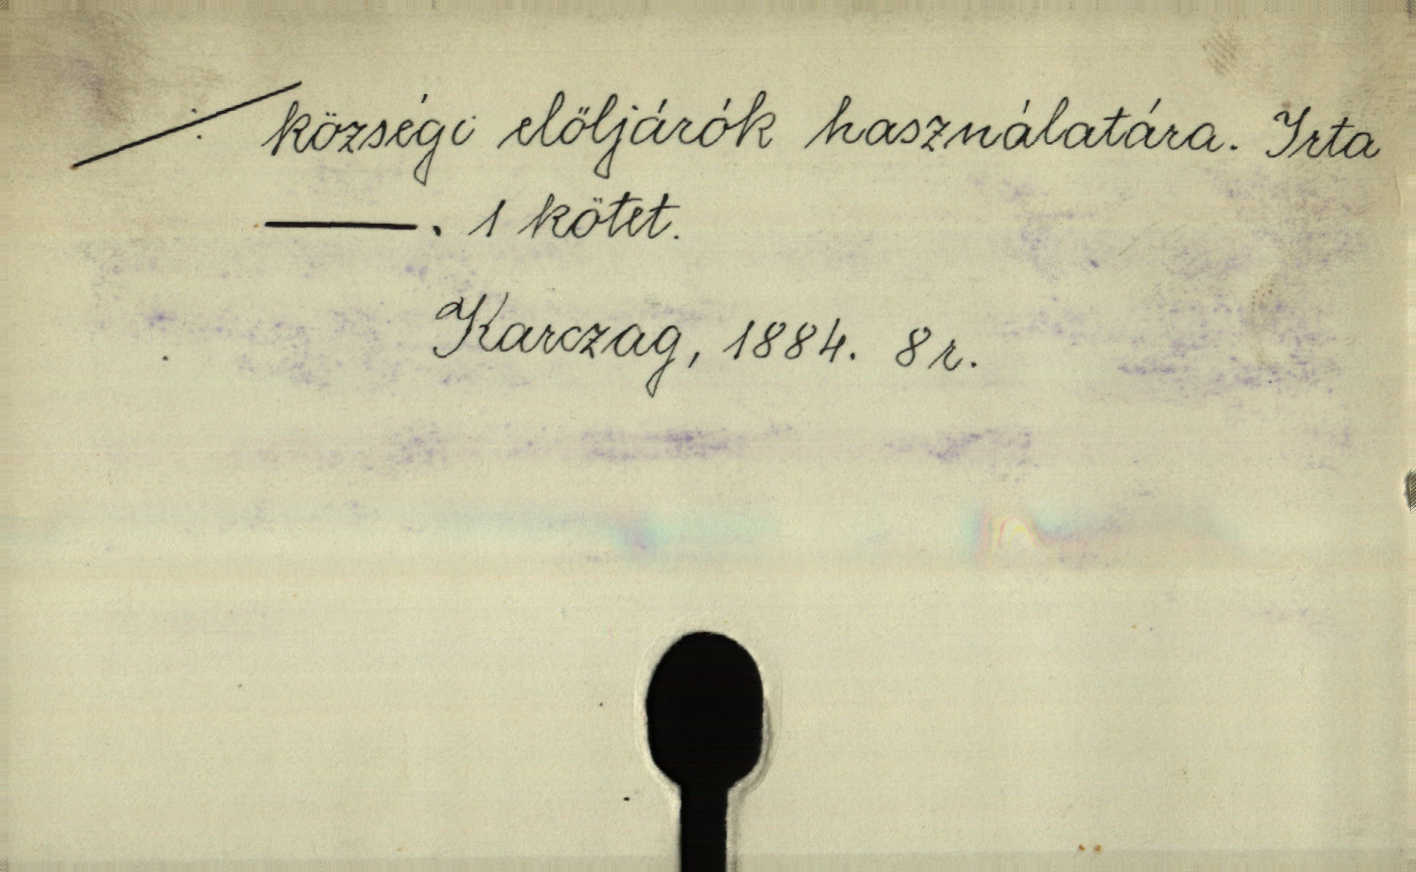 községi előljárók használatára. Irta
———. 1 kötet.
Karczag, 1884. 8 r.